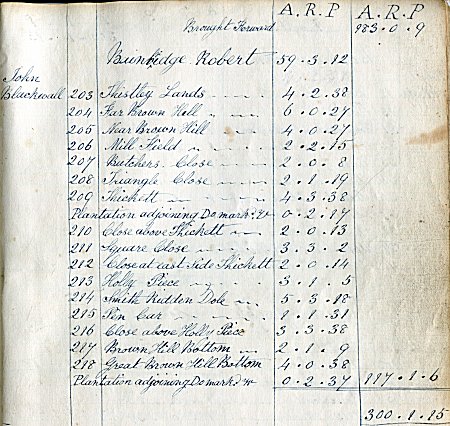 A. R. P A. R. P
Brought Forward 183.0.9
Bainbridge Robert 59.3.12
John
Blackwall 203 Thistley Lands 4.2.38
204 Far Brown Hill " 6.0.27
205 Near Brown Hill 4.0.27
206 Mill Field " 2.2.15
207 Butchers Close 2.0.8
208 Triangle Close 2.1.19
209 Thickett 4.3.38
Plantation adjoining Do mark:d 0.2.17
210 Close above Thickett 2.0.13
211 Square Close 3.3.2
212 Close at east Side Thickett 2.0.14
213 Holly Piece 3.1.5
214 Smith Rudden Dole 5.3.18
215 Pen Car 1.1.31
216 Close above Holly Piece 3.3.38
217 Brown Hill Bottom 2.1.9
218 Great Brown Hill Bottom 4.0.38
Plantation adjoining Do mark:d 0.2.37 117.1.6
300.1.15